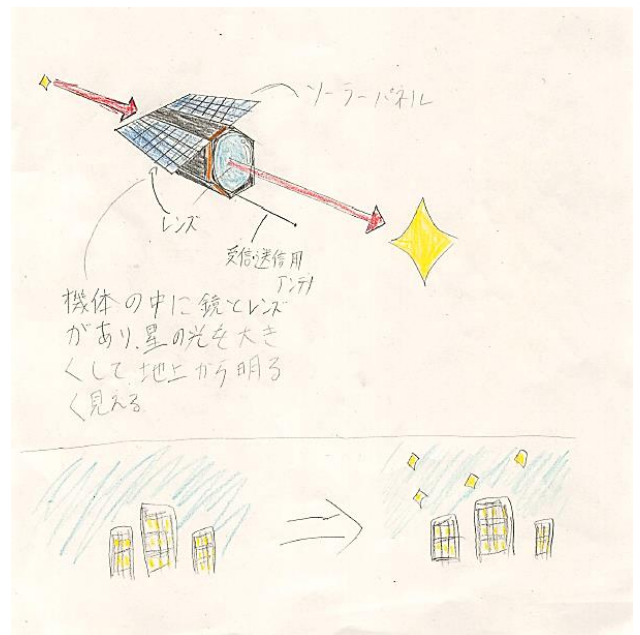 ソーラーパネル
レンズ
受信・送信用
アンテナ
機体の中に鏡とレンズ
があり、星の光を大き
くして、地上から明る
く見える